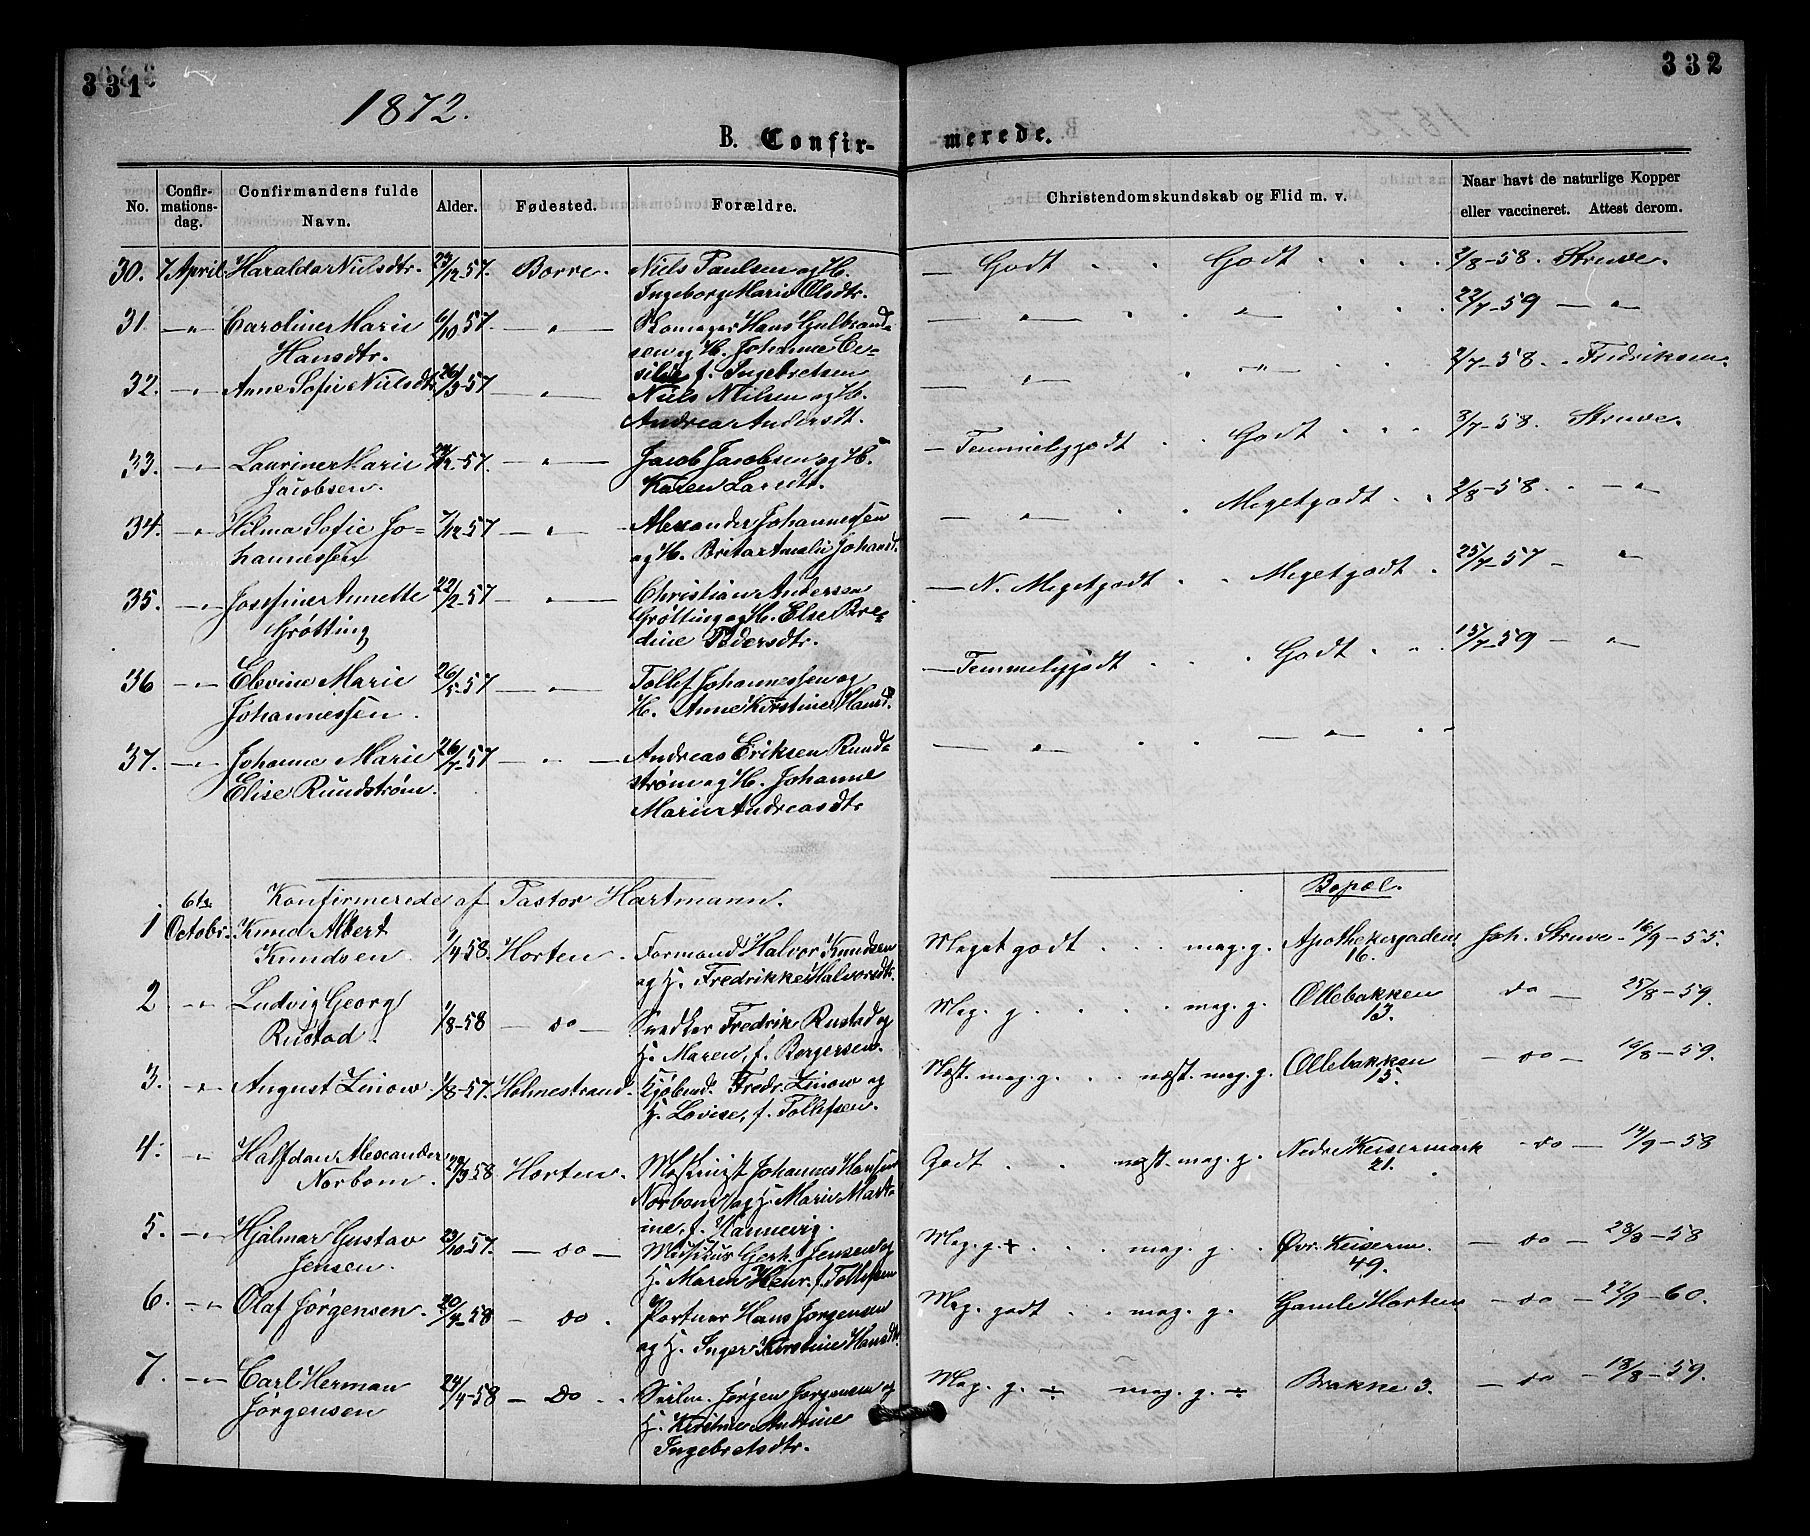 331
332
1872.
B. Confir-
merede.
No.
Confir-
mations-
dag.
Confirmandens fulde
Navn.
Alder.
Fødested.
Forældre.
Christendomskundskab og Flid m. v.
Naar havt de naturlige Kopper
eller vaccineret. Attest derom.
30. 7 April Haralda Nielsdtr. 23/12-57. Borre. Niels Paulsen og H. — Godt . . Godt . . . 2/8-58. Struve.
Ingeborg Marie Olsdtr.
31. —"— Caroline Marie 6/10 57. —"— Hans Gulbrand- — " — . " . . 22/7-59 — " —
Hansdtr. sen og H. Johanne Ce-
silie f. Ingebretsen
32. —"— Anne Sofie Nielsdtr 26/3-57 —"— Niels Nilsen og H. — " — . —"— . . 2/7-58. . Fredriksen.
Andrea Andersdt.
33. —"— Laurine Marie -57. —"— Jacob Jacobsen og H. — Temmeligodt . . Godt . . . 3/7-58. Struve.
Jacobsen. Karen Larsdtr.
34. —"— Hilma Sofie Jo- 7/12-57 —"— Alexander Johannessen — " — . . Megetgodt . . 2/8-58. . —"—
hannessen og H. Brita Amalie Johansd.
35. —"— Josefine Annette 22/2-57 —"— Christian Andersen — N. Megetgodt . . Megetgodt . 25/7-57 — "
Grøtting Grøtting og H. Else Bre-
dine Pedersdtr.
36 —"— Elevine Marie 26/5-57 —"— Tollef Johannessen og — Temmeligodt . . . Godt . . . 15/7-59 — "
Johannessen. H. Anne Kirstine Hansd.
37. —"— Johanne Marie 26/7-57 — " — Andreas Eriksen Rund- — " — . . — " — . .
Elise Rundstrøm. strøm og H. Johanne
Marie Andreasdtr
Konfirmerede af Pastor Hartmann.
Bopæl.
6te
1 Octobr. Knud Albert 1/4-58. Horten. Formand Halvor Knudsen Meget godt . . . meg. g. Apothekergaden Joh. Struve - 16/9-55.
Knudsen. og H. Fredrikke Halvorsdtr. 16.
2 —"— Ludvig Georg 1/8-58 — do — Snedker Fredrik Rustad og Meg. g. . . . . meg. g. Ollebakken do — 25/8-59.
Rustad. H. Maren, f. Borgersen. 13.
3. " August Linow 1/8-57. Holmestrand. Kjøbmd. Fredr. Linow og Næst. meg. g. . . næst. meg. g. Ollebakken — do — 16/8-59.
H. Lovise, f. Tollefsen. 15.
4. " Halfdan Alexander 22/9-58 Horten. Maskinist Johannes Hansen Godt . . næst. meg. g. Nedre Keisermark — do — 14/9-58
Norbom. Norbom og H. Marie Mart- 21.
ine, f. Wannevig.
5. —"— Hjalmar Gustav 23/10-57. — do — Musikus Gerh. Jensen og Meg. g. + . . . meg. g. . Øvr. Keiserm. — do — 28/8-58
Jensen. H. Maren Henr. f. Tollefsen 49.
6. —"— Olaf Jørgensen. 20/4-58 — do . Portner Hans Jørgensen Meg. godt . . meg. g. Gamle Horten — do — 22/9-60.
og H. Inger Kirstine Hansdtr
7. —"— Carl Herman 24/4-58 — Do . . Seilm. Jørgen Jørgensen og Meg. g. ÷ meg. g. ÷ Brakke 3. — do — 18/8-59.
Jørgensen H. Kirstine Andrine
Ingebretsdtr.